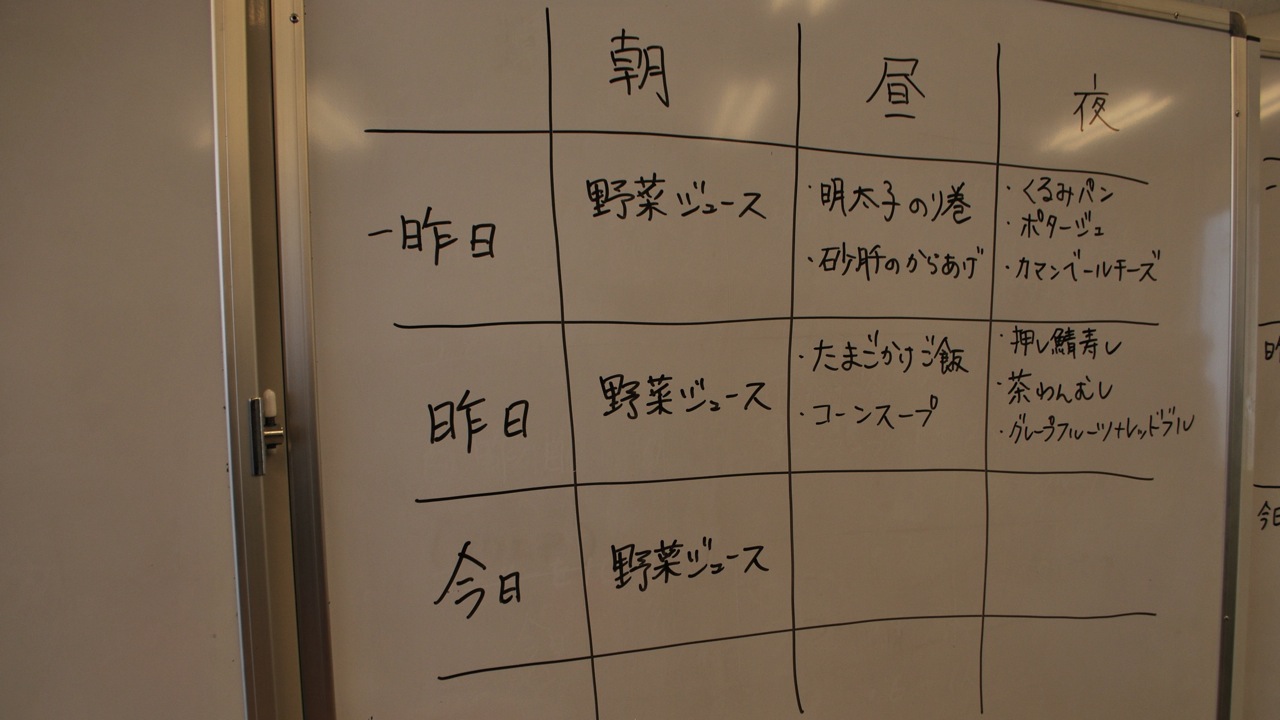 朝 昼 夜
一昨日
野菜ジュース
・明太子のり巻
・砂肝のからあげ
・くるみパン
・ポタージュ
・カマンベールチーズ
昨日
野菜ジュース
・たまごかけご飯
・コーンスープ
・押し鯖寿し
・茶わんむし
・グレープフルーツ+レッドブル
今日
野菜ジュース
昨
今日